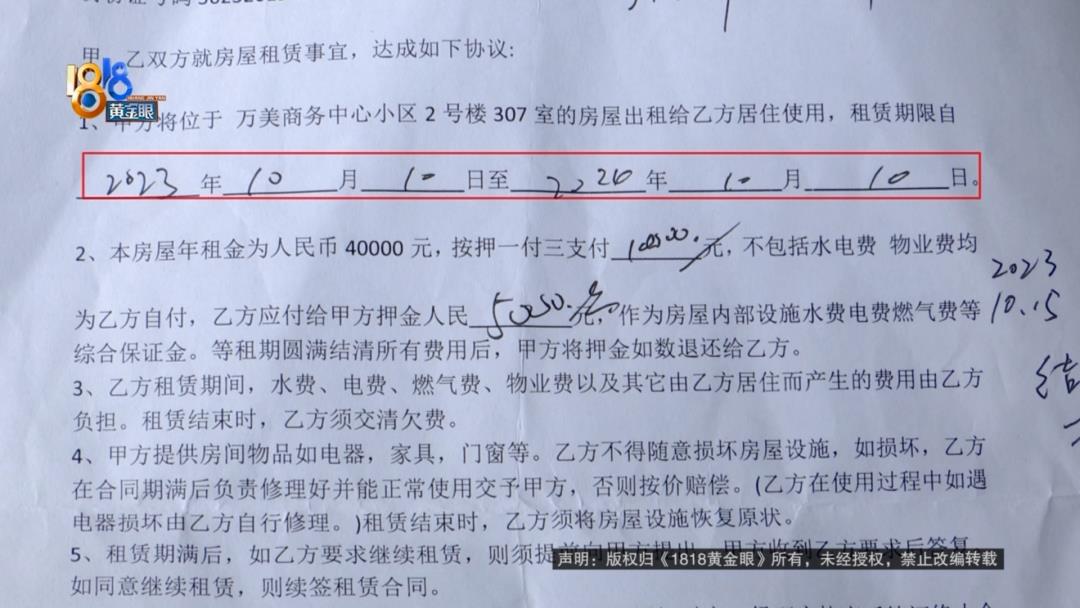 甲、乙双方就房屋租赁事宜，达成如下协议:
1818
黄金眼
1、甲方将位于 万美商务中心小区 2 号楼 307 室的房屋出租给乙方居住使用，租赁期限自
2023 年 10 月 10 日至 2026 年 10 月 10 日。
2、本房屋年租金为人民币 40000 元，按押一付三支付 10000. 元，不包括水电费 物业费均
2023
10.15
为乙方自付，乙方应付给甲方押金人民 元，作为房屋内部设施水费电费燃气费等
综合保证金。等租期圆满结清所有费用后，甲方将押金如数退还给乙方。
3、乙方租赁期间，水费、电费、燃气费、物业费以及其它由乙方居住而产生的费用由乙方
负担。租赁结束时，乙方须交清欠费。
4、甲方提供房间物品如电器，家具，门窗等。乙方不得随意损坏房屋设施，如损坏，乙方
在合同期满后负责修理好并能正常使用交予甲方，否则按价赔偿。(乙方在使用过程中如遇
电器损坏由乙方自行修理。)租赁结束时，乙方须将房屋设施恢复原状。
5、租赁期满后，如乙方要求继续租赁，则须提前向甲方提出，甲方收到乙方要求后答复
如同意继续租赁，则续签租赁合同。
声明：版权归《1818黄金眼》所有，未经授权，禁止改编转载